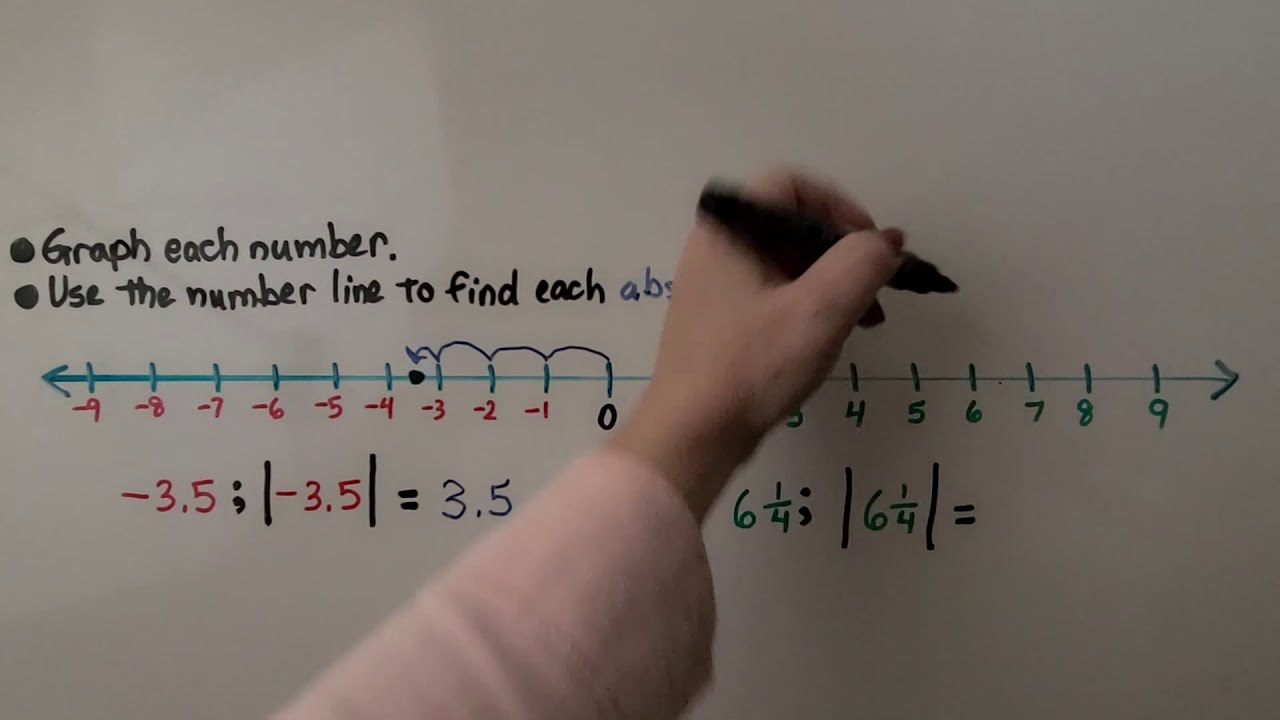 Graph each number.
Use the number line to find each
-9 -8 -7 -6 -5 -4 -3 -2 -1 0 4 5 6 7 8 9
-3.5 ; |-3.5| = 3.5 6 1/4 ; |6 1/4| =